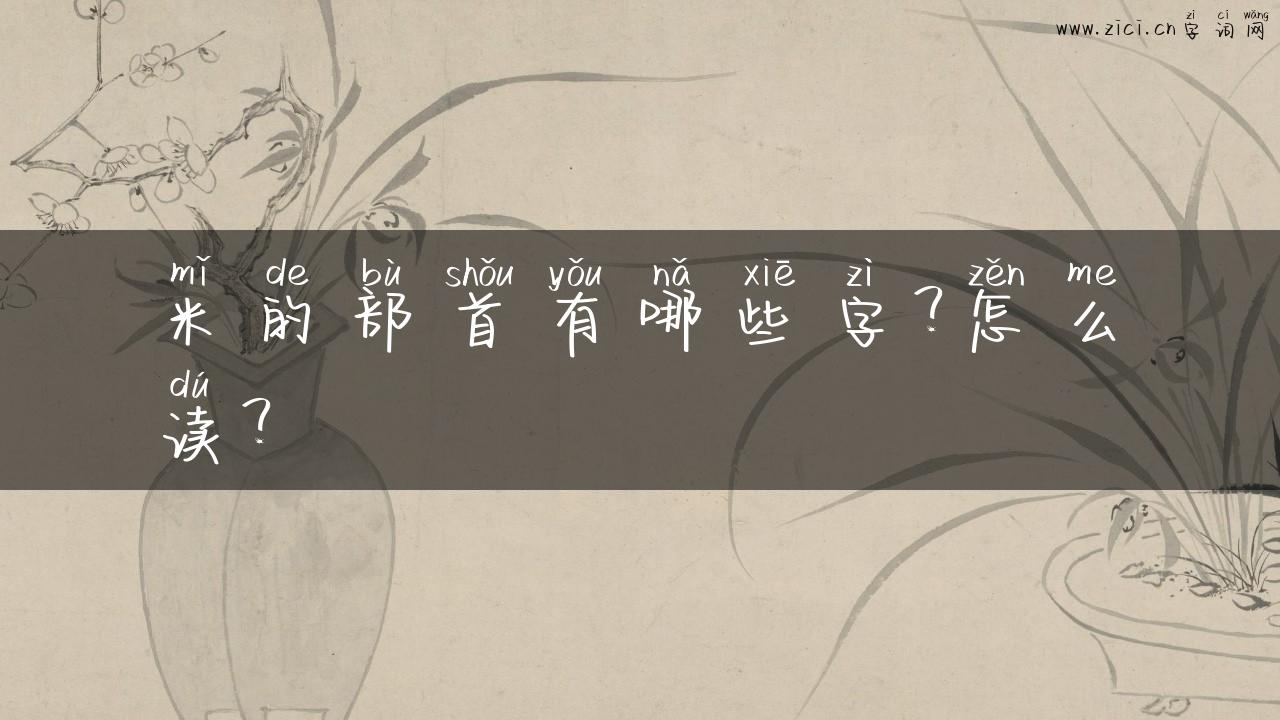 zì cí wǎng
www.zici.cn 字词网
mǐ de bù shǒu yǒu nǎ xiē zì zěn me
米的部首有哪些字？怎么
dú
读？